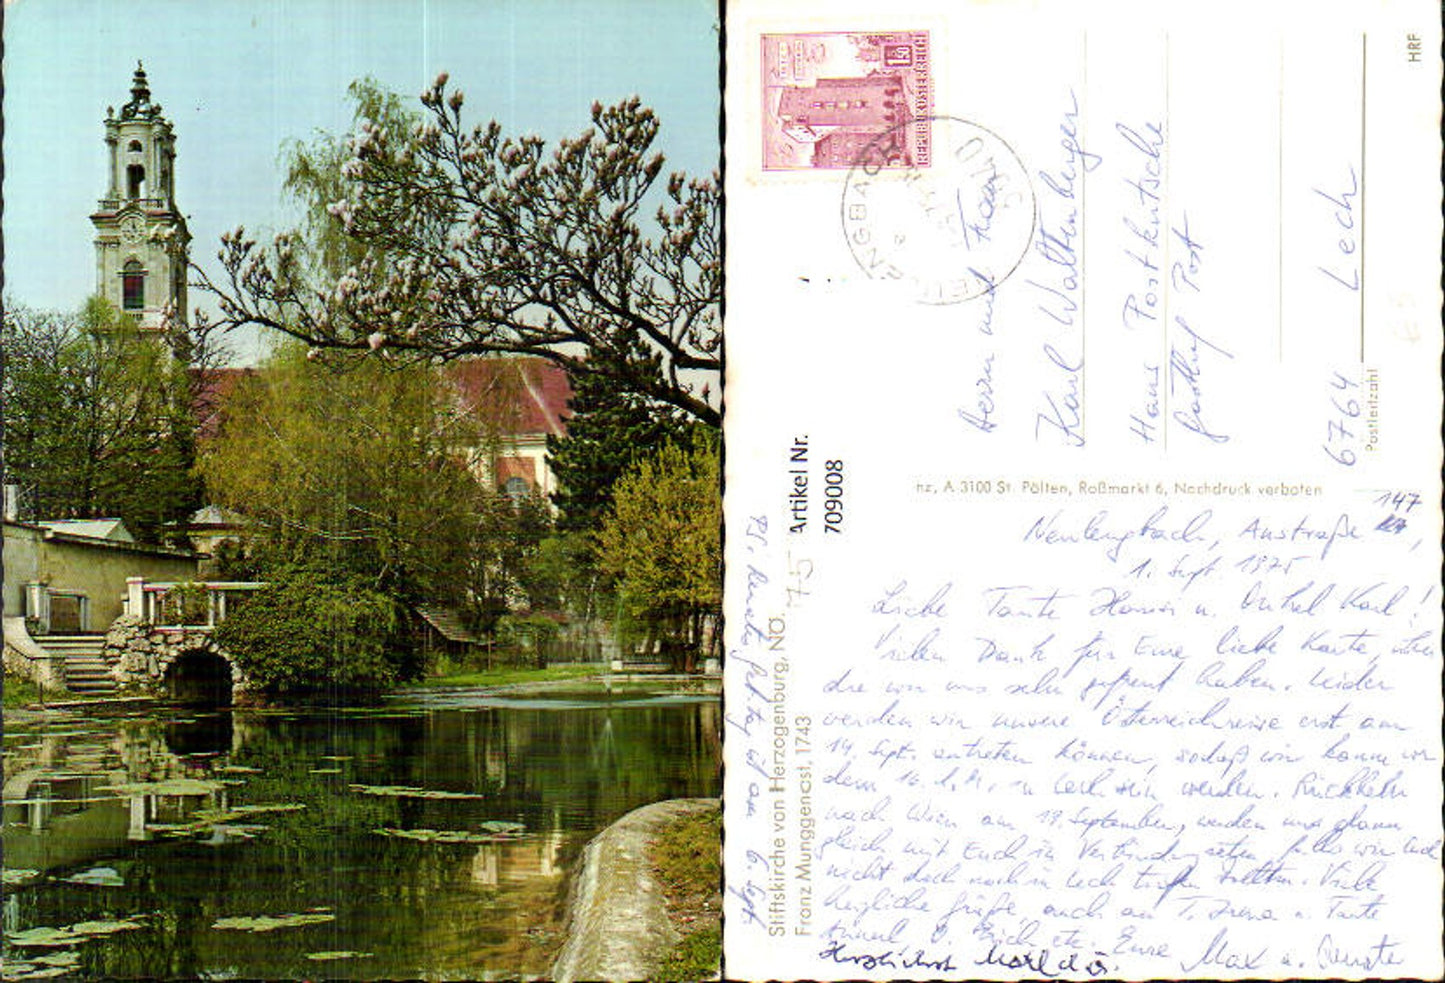 1.50
REPUBLIK ÖSTERREICH
HRF
Herrn und Frau
Karl Waltenberger
Haus Postkutsche
Gasthof Post
6764 Lech
Postleitzahl
Artikel Nr.
709008
nz, A 3100 St. Pölten, Roßmarkt 6, Nachdruck verboten
Stiftskirche von Herzogenburg, NÖ.
Franz Munggenast, 1743
75
147
Neulengbach, Austraße
1. Sept. 1975
Liebe Tante Hanni u. Onkel Karl!
Vielen Dank für Eure liebe Karte, über
die wir uns sehr gefreut haben. Leider
werden wir unsere Österreichreise erst am
14. Sept. antreten können, sodaß wir kaum vor
dem 16. in Lech sein werden. Rückkehr
nach Wien am 19. September, werden uns dann
gleich mit Euch in Verbindung setzen falls wir Euch
nicht doch noch in Lech treffen sollten. Viele
herzliche Grüße, auch an T. Irena u. Tante
O. Erich etc. Eure Max u. Renate
Herzlichst
PS. Renates Geb.tag ist am 6. Sept.